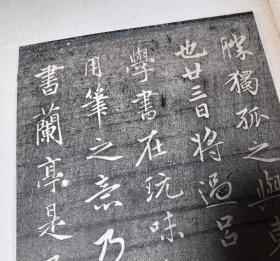 勝獨孤之與東
也廿三日將過呂
學書在玩味
用筆之意乃
書蘭亭是